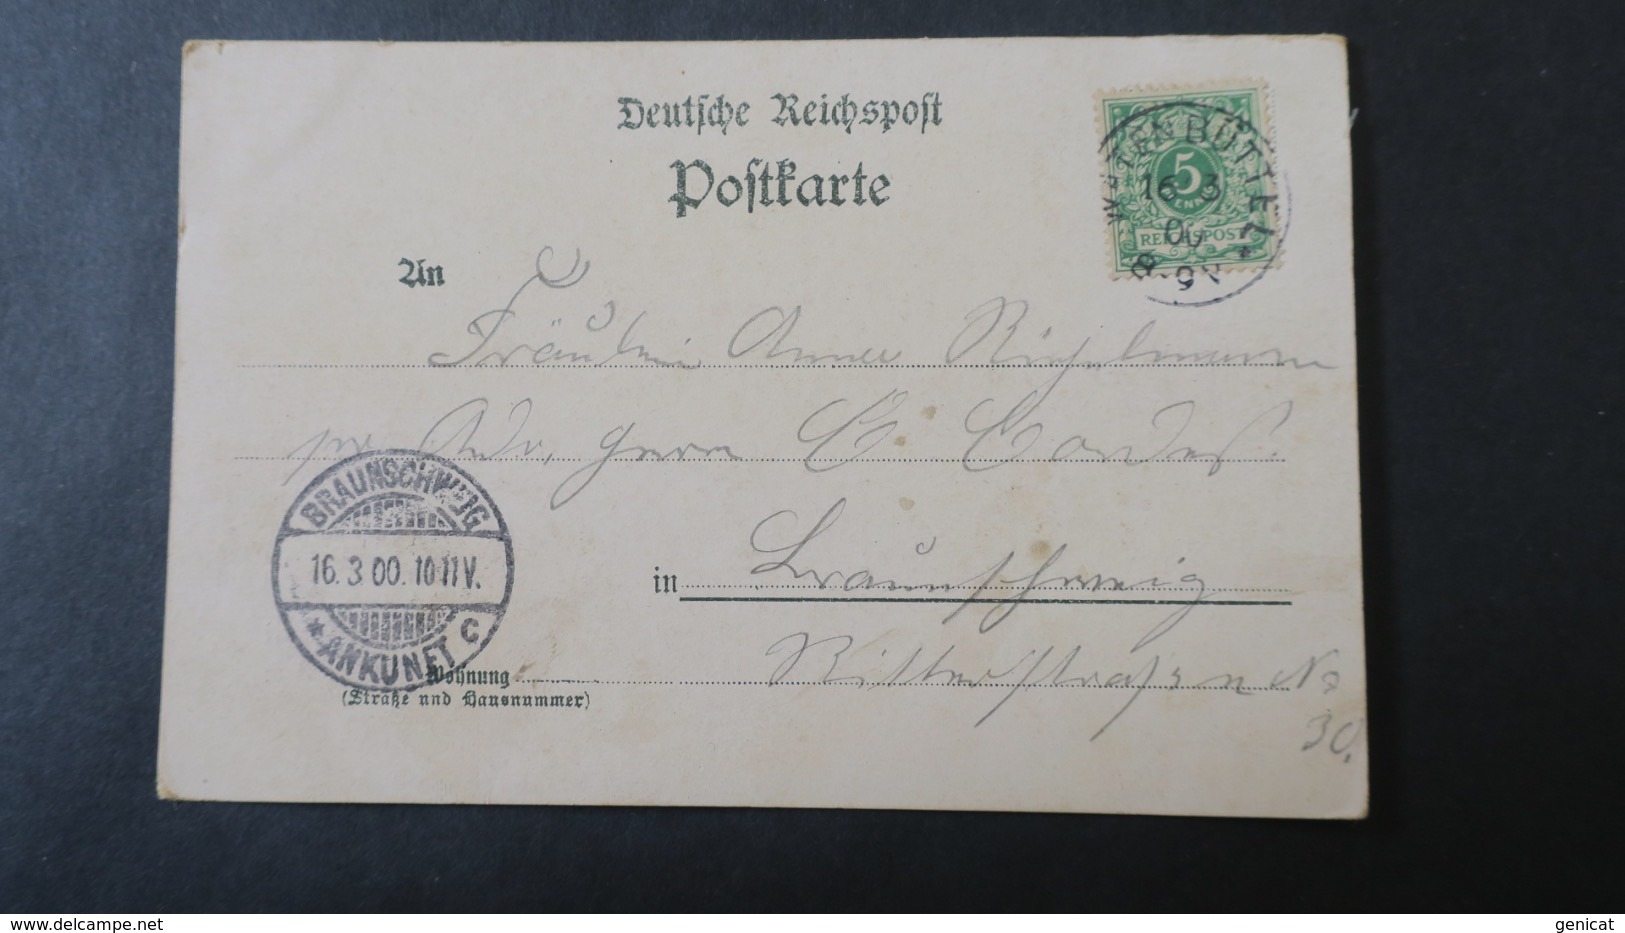 Deutsche Reichspost
Postkarte
WATENBÜTTEL
16 3
00
8-9V
5
PFENNIG
REICHSPOST
An
Fräulein Anna
pr Adr. Herrn C Cordes.
in Braunschweig
Wohnung Ritterstraßen No
(Straße und Hausnummer)
30.
BRAUNSCHWEIG
16. 3 00. 10-11 V.
* ANKUNFT C
delcampe.net
genicat